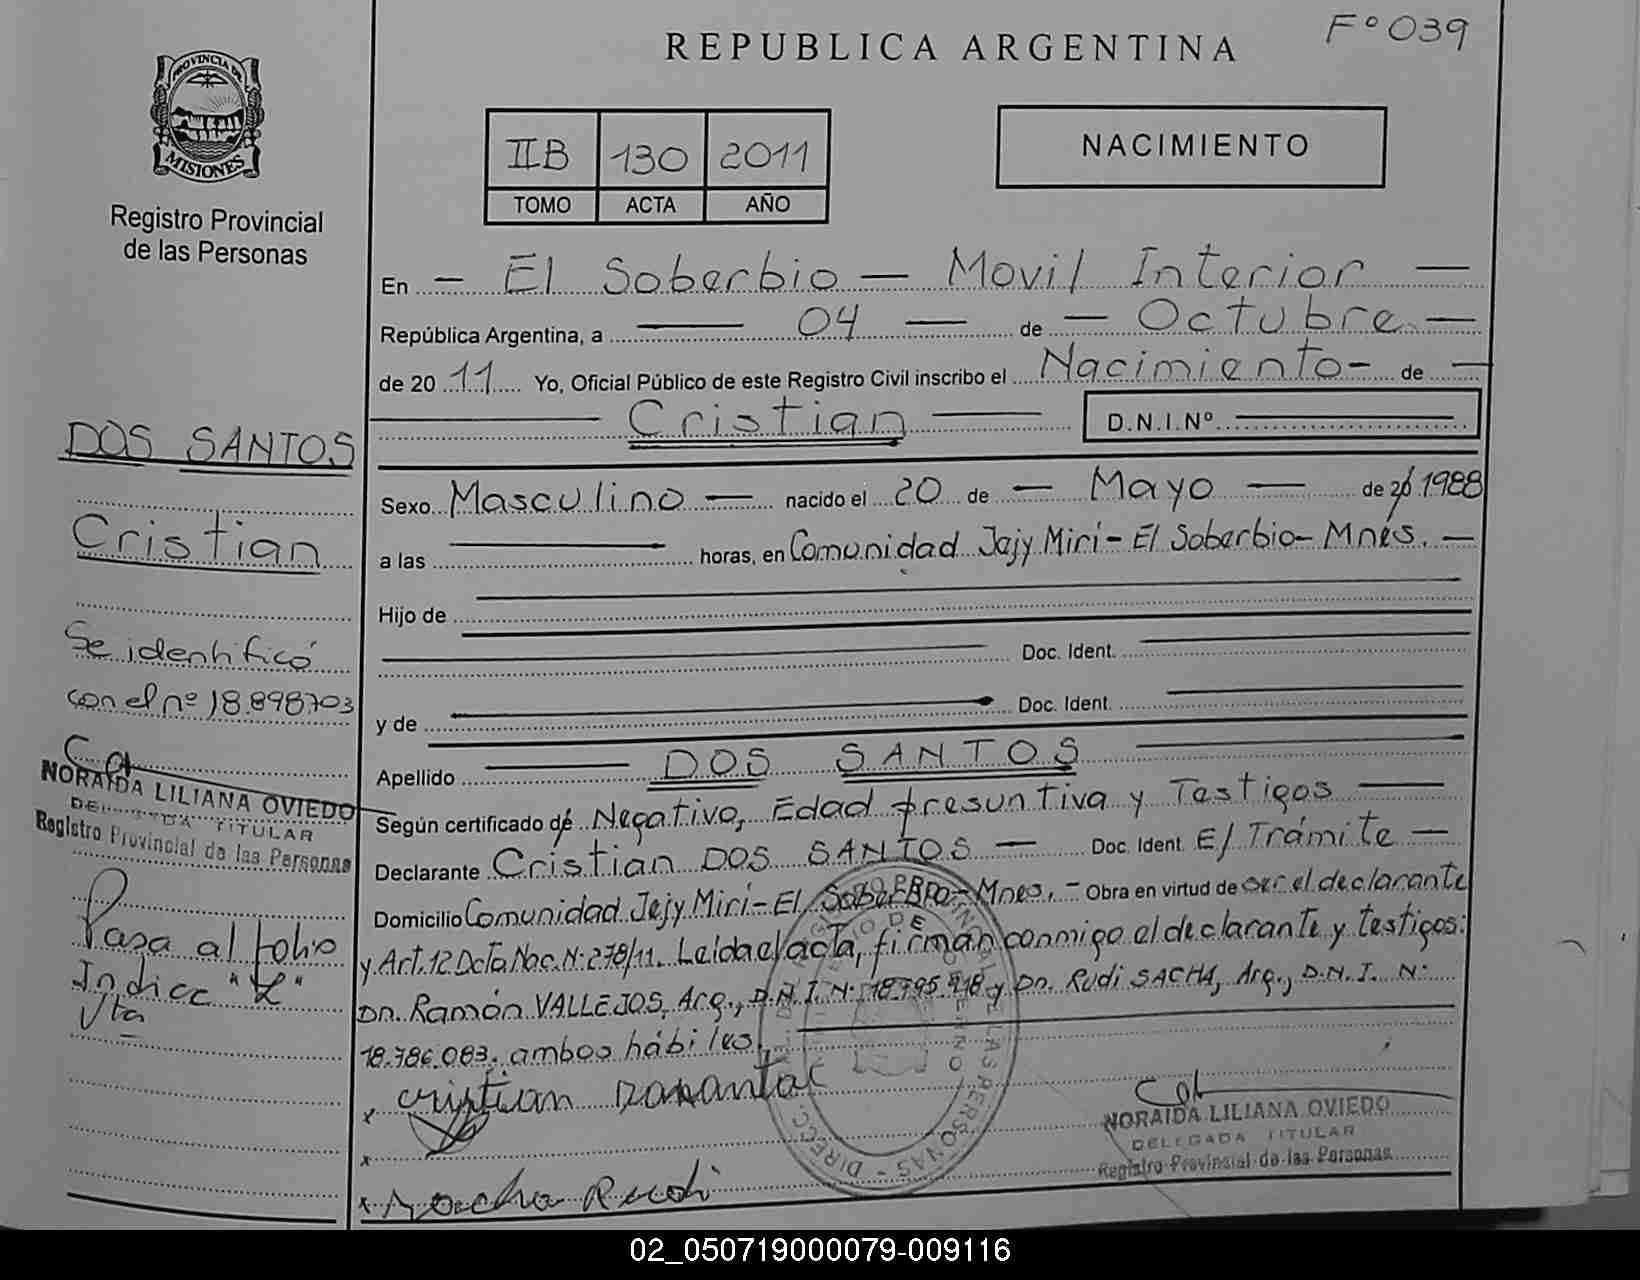 F° 039
REPUBLICA ARGENTINA
PROVINCIA DE
MISIONES
Registro Provincial
de las Personas
IIB 130 2011
TOMO ACTA AÑO
NACIMIENTO
En — El Soberbio — Movil Interior —
República Argentina, a — 04 — de — Octubre —
de 20 11 Yo, Oficial Público de este Registro Civil inscribo el Nacimiento — de —
— Cristian — D.N.I.Nº —
Sexo Masculino — nacido el 20 de — Mayo — de 20 1988
a las — horas, en Comunidad Jejy Miri - El Soberbio - Mnes. —
Hijo de —
— Doc. Ident. —
y de — Doc. Ident. —
Apellido — DOS SANTOS —
Según certificado de Negativo, Edad presuntiva y Testigos —
Declarante Cristian DOS SANTOS — Doc. Ident. E/ Trámite —
Domicilio Comunidad Jejy Miri - El Soberbio - Mnes. - Obra en virtud de ser el declarante
y Art. 12 Dcto Nac. N· 278/11. Leida el acta, firman conmigo el declarante y testigos:
Dn. Ramón VALLEJOS, Arg., D.N.I. N· 18.795.918 y Dn. Rudi SACHA, Arg., D.N.I. N·
18.786.083. ambos hábiles.
x cristian
x
x Rudi
NORAIDA LILIANA OVIEDO
DELEGADA TITULAR
Registro Provincial de las Personas
DOS SANTOS
Cristian
Se identificó
con el nº 18.898703
NORAIDA LILIANA OVIEDO
DELEGADA TITULAR
Registro Provincial de las Personas
Pasa al folio
Indice "L"
Vta
02_050719000079-009116